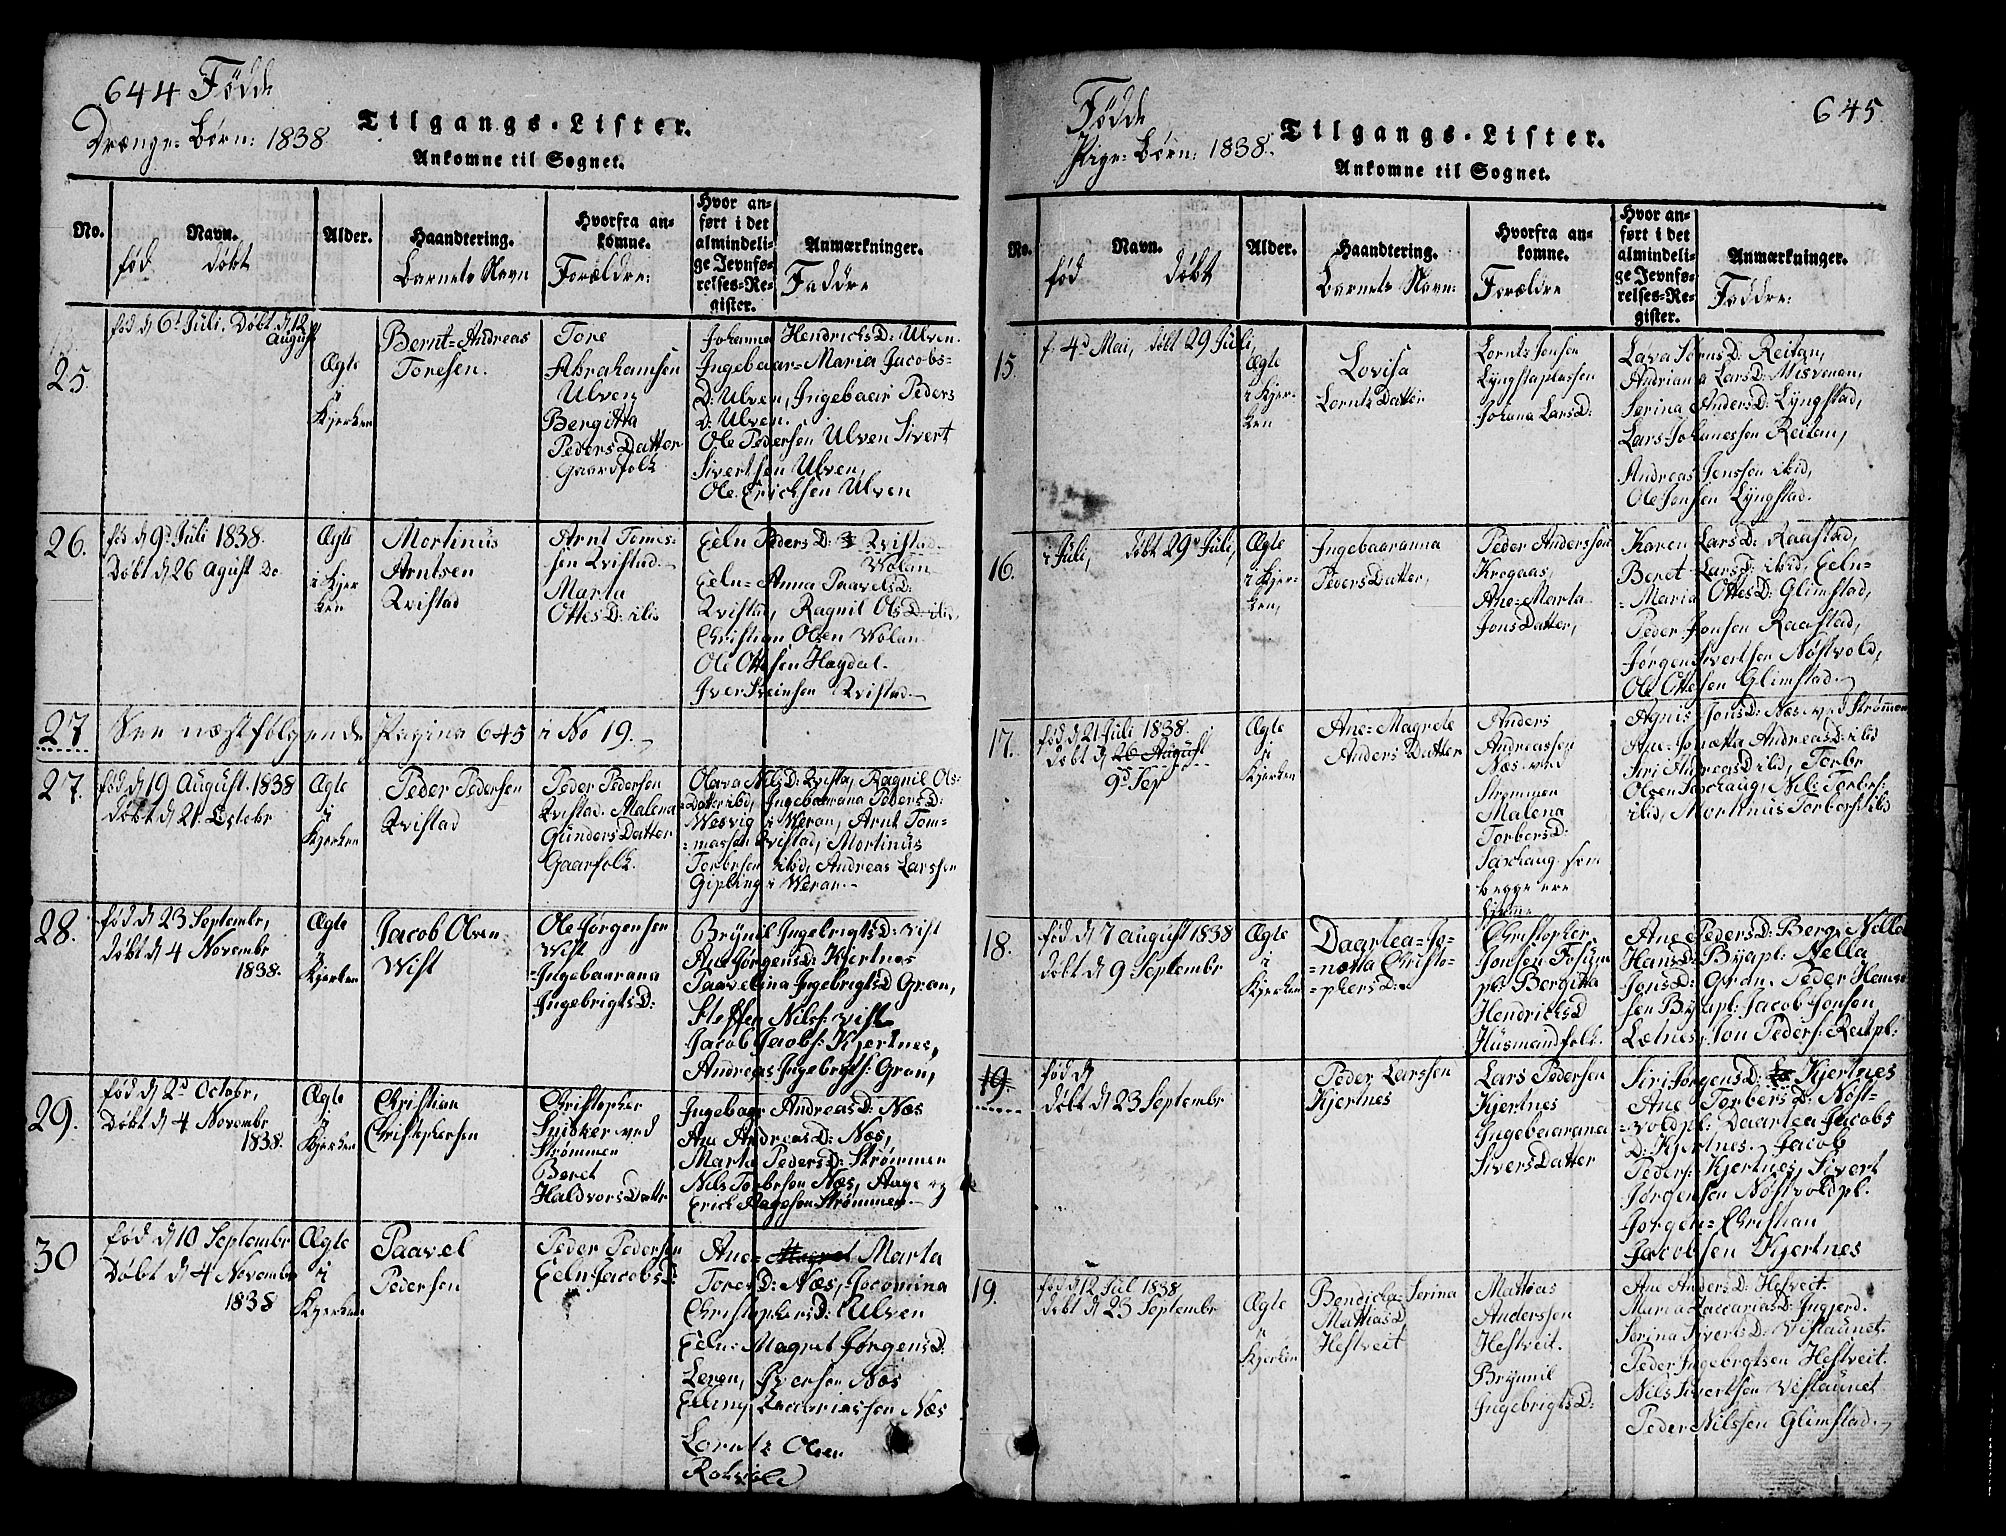 644 Fødde
Drænge-Børn: 1838
Tilgangs-Lister.
Ankomne til Sognet.
No.
Navn.
Alder.
Haandtering.
Hvorfra an-
komne.
Hvor an-
ført i det
almindeli-
ge Jevnfø-
relses-Re-
gister.
Anmærkninger.
fød døbt
Barnets Navn
Forældre:
Faddre
25.
fød d 6t Juli, Døbt d 12
August
Ægte
i
Kjerken
Bernt-Andreas
Toresen.
Tore
Abrahamsen
Ulven
Bergitta
PedersDatter
Gaardfolk
Johanna HendrichsD: Ulven.
Ingebaar-Maria Jacobs-
D: Ulven, Ingebaar Peders
D: Ulven.
Ole Pedersen Ulven Sivert
Sivertsen Ulven,
Ole Ericksen Ulven
26.
fød d 9d Juli 1838.
Døbt d 26 Agust Do
Ægte
i Kjer
ken
Mortinus
Arntsen
Qvistad
Arnt Tomes-
sen Qvistad
Marta
OttesD: ibid
Eeln PedersD: Qvistad
Wolan
Eeln-Anna PaavelsD:
Qvistad, Ragnil OlsD ibid,
Christian Olsen Wolan
Ole Ottesen Haydal
Iver Sveinsen Qvistad
27
See næstfølgende Pagina 645 i No 19.
27.
fød d 19 August 1838
døbt d 21 Octobr
Ægte
i
Kjerken
Peder Pedersen
Qvistad
Peder Pedersen
Qvistad. Malena
GundersDatter
Gaarfolk.
Olava NilsD: Qvista, Ragnil Ols-
Datter ibid, Ingebaarana PedersD:
Wesvig i Weran, Arnt Tom-
massen Qvistad, Mortinus
Torbersen ibid, Andreas Larssen
Gipling i Weran
28.
fød d 23 Septembr,
døbt d 4 Novembr
1838.
Ægte
i
Kjerken
Jacob Olsen
Wist
Ole Jørgensen
Wist
Ingebaarana
IngebrigtsD:
Brynil IngebrigtsD: Vist
Ane JørgensD: Kjertnes
Paavelina IngebrigtsD Gran,
Steffen Nilss: Vist
Jacob Jacobs: Kjertnes,
Andreas Ingebrigts: Gran,
29.
fød d 2d Octobr,
Døbt d 4 Novembr
1838.
Ægte
i
Kjerken
Christian
Christophersen
Christopher
Snidker ved
Strømmen
Beret
HaldvorsDattr
Ingebaar AndreasD: Næs
Ane AndreasD: Næs,
Marta PedersD: Strømmen
Nils Torbersen Næs, Aage og
Erick Aagesen Strømmen
30
fød d 10 Septembr
Døbt d 4 Novembr
1838
Ægte
i
Kjerken
Paavel
Pedersen
Peder Pedersen
Eeln JacobsD:
Ane-Magret Marta
ToresD: Næs, Jocomina
ChristophersD: Ulven
Eeln-Magret JørgensD:
Leren, Iversen Næs
Elling Zacariassen Næs
Lorntz Olsen
Rokvole
Fødde
Pige-Børn: 1838.
Tilgangs-Lister.
Ankomne til Sognet.
645
No.
Navn.
Alder.
Haandtering.
Hvorfra an-
komne.
Hvor an-
ført i det
almindeli-
ge Jevnfø-
relses-Re-
gister.
Anmærkninger.
fød døbt
Barnets Navn:
Forældre
Faddre:
15.
f. 4d Mai, døbt 29 Juli,
Ægte
i Kjer-
ken
Lovisa
LorntzDatter
Lorntz Jonsen
Lyngstaplassen
Johana LarsD:
Lava JørnsD: Reitan,
Adriana LarsD: Misvenan,
Serina AndersD: Lyngstad,
Lars Johanessen Reitan,
Andreas Jenssen ibid,
Ole Jonsen Lyngstad.
16.
i Juli, døbt 29de Juli,
Ægte
i Kjer-
ken,
Ingebaaranna
PedersDatter,
Peder Anderssen
Kregaas,
Ane-Marta
JonsDatter,
Karen LarsD: Raastad,
Beret LarsD: ibid, Eeln-
-Maria OttesD: Glimstad,
Peder Jonsen Raastad,
Jørgen Sivertsen Nøstvold,
Ole Ottesen Glimstad.
17.
fød d 21 Juli 1838.
døbt d 26 August
9d Sep
Ægte
i
Kjerken
Ane-Magrete
Anders Datter
Anders
Andreassen
Næs ved
Strømmen
Malena
TorbersD:
Saxhaug. som
begge ere
Agnis JonsD: Næs ved Strømmen
Ane-Jonetta AndreasD: ibid
Siri AndreasD ibid, Torbr
Olsen Saxhaug, Nils Torbrs:
ibid, Mortinus Torbors: ibid
18.
fød d 7 August 1838
døbt d 9 Septembr
Ægte
i
Kjerken
Daartea-Jo-
-netta Christo-
-phersD:
Christopher
Jonsen Fysum
pl: Bergitta
HendrichsD
Husmandfolk.
Ane PedersD: Berg, Nella
HansD: Byapl: Nella
JonsD: Gran, Peder Hansen
sen Byapl: Jacob Jonsen
Lætnes, Jon Peders: Reitpl:
19.
fød d
døbt d 23 Septembr
Peder Larssen
Kjertnes
Lars Pedersen
Kjertnes
Ingebaarana
SiversDatter
Siri JørgensD: Kjertnes
Ane TorbersD: Nøst-
-voldpl: Daartea Jacobs
D: Kjertnes. Jacob
Peders: Kjertnes, Sivert
Jørgensen Nøstvoldpl.
Jørgen-Christian
Jacobsen Kjertnes
19.
fød d 12 Jul 1838
døbt d 23 Septembr
Ægte
i
Kjerken
Bendicta-Serina
MattiasD
Hestveit
Mattias
Anderssen
Hestveit.
Brynnil
IngebrigtsD:
Ane AndersD: Hestveit.
Maria ZaccariasD: Ingjerd.
Serina SivertsD: Vistaunet.
Peder Ingebrigtsen Hestveit.
Nils Sivertsen Vistaunet
Peder Nilssen Glimstad.